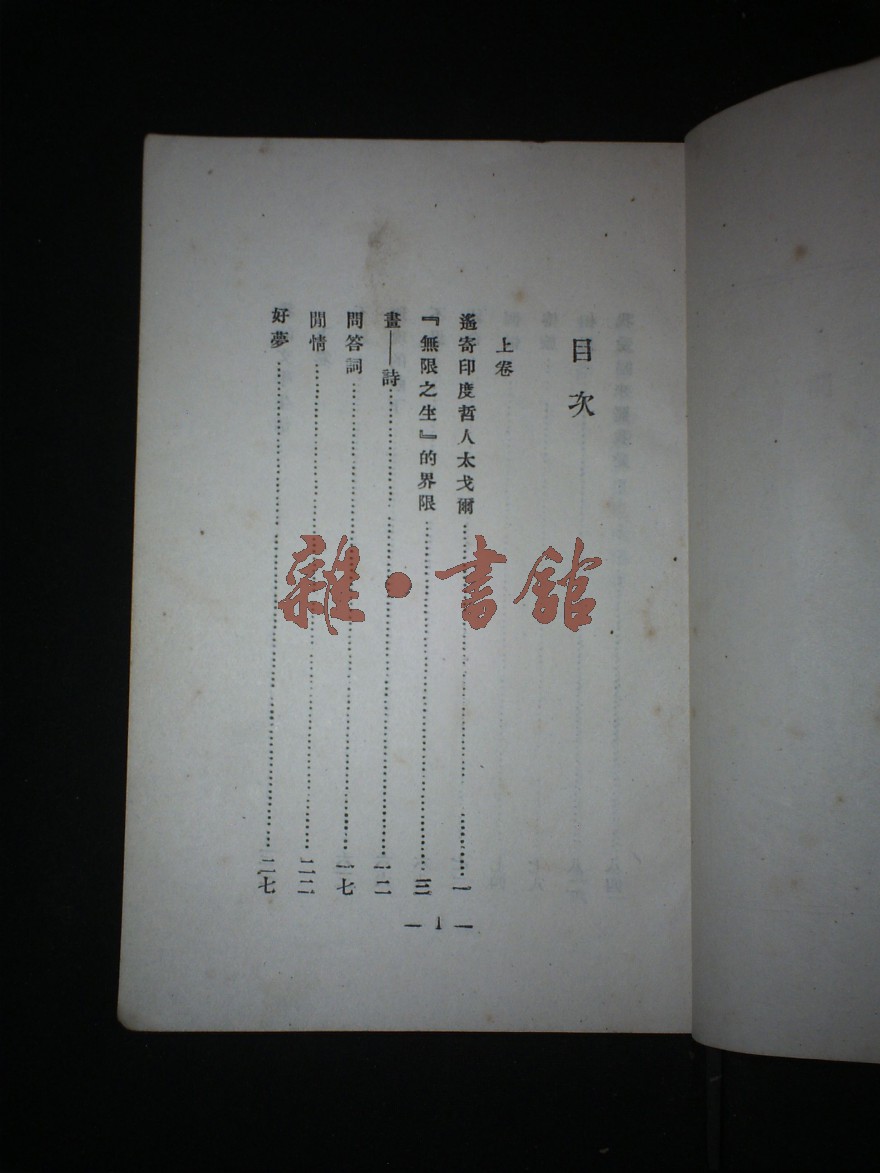 目次
上卷
遙寄印度哲人太戈爾……一
『無限之生』的界限……三
畫——詩……一二
問答詞……一七
閒情……二二
好夢……二七
— 1 —
雜·書館